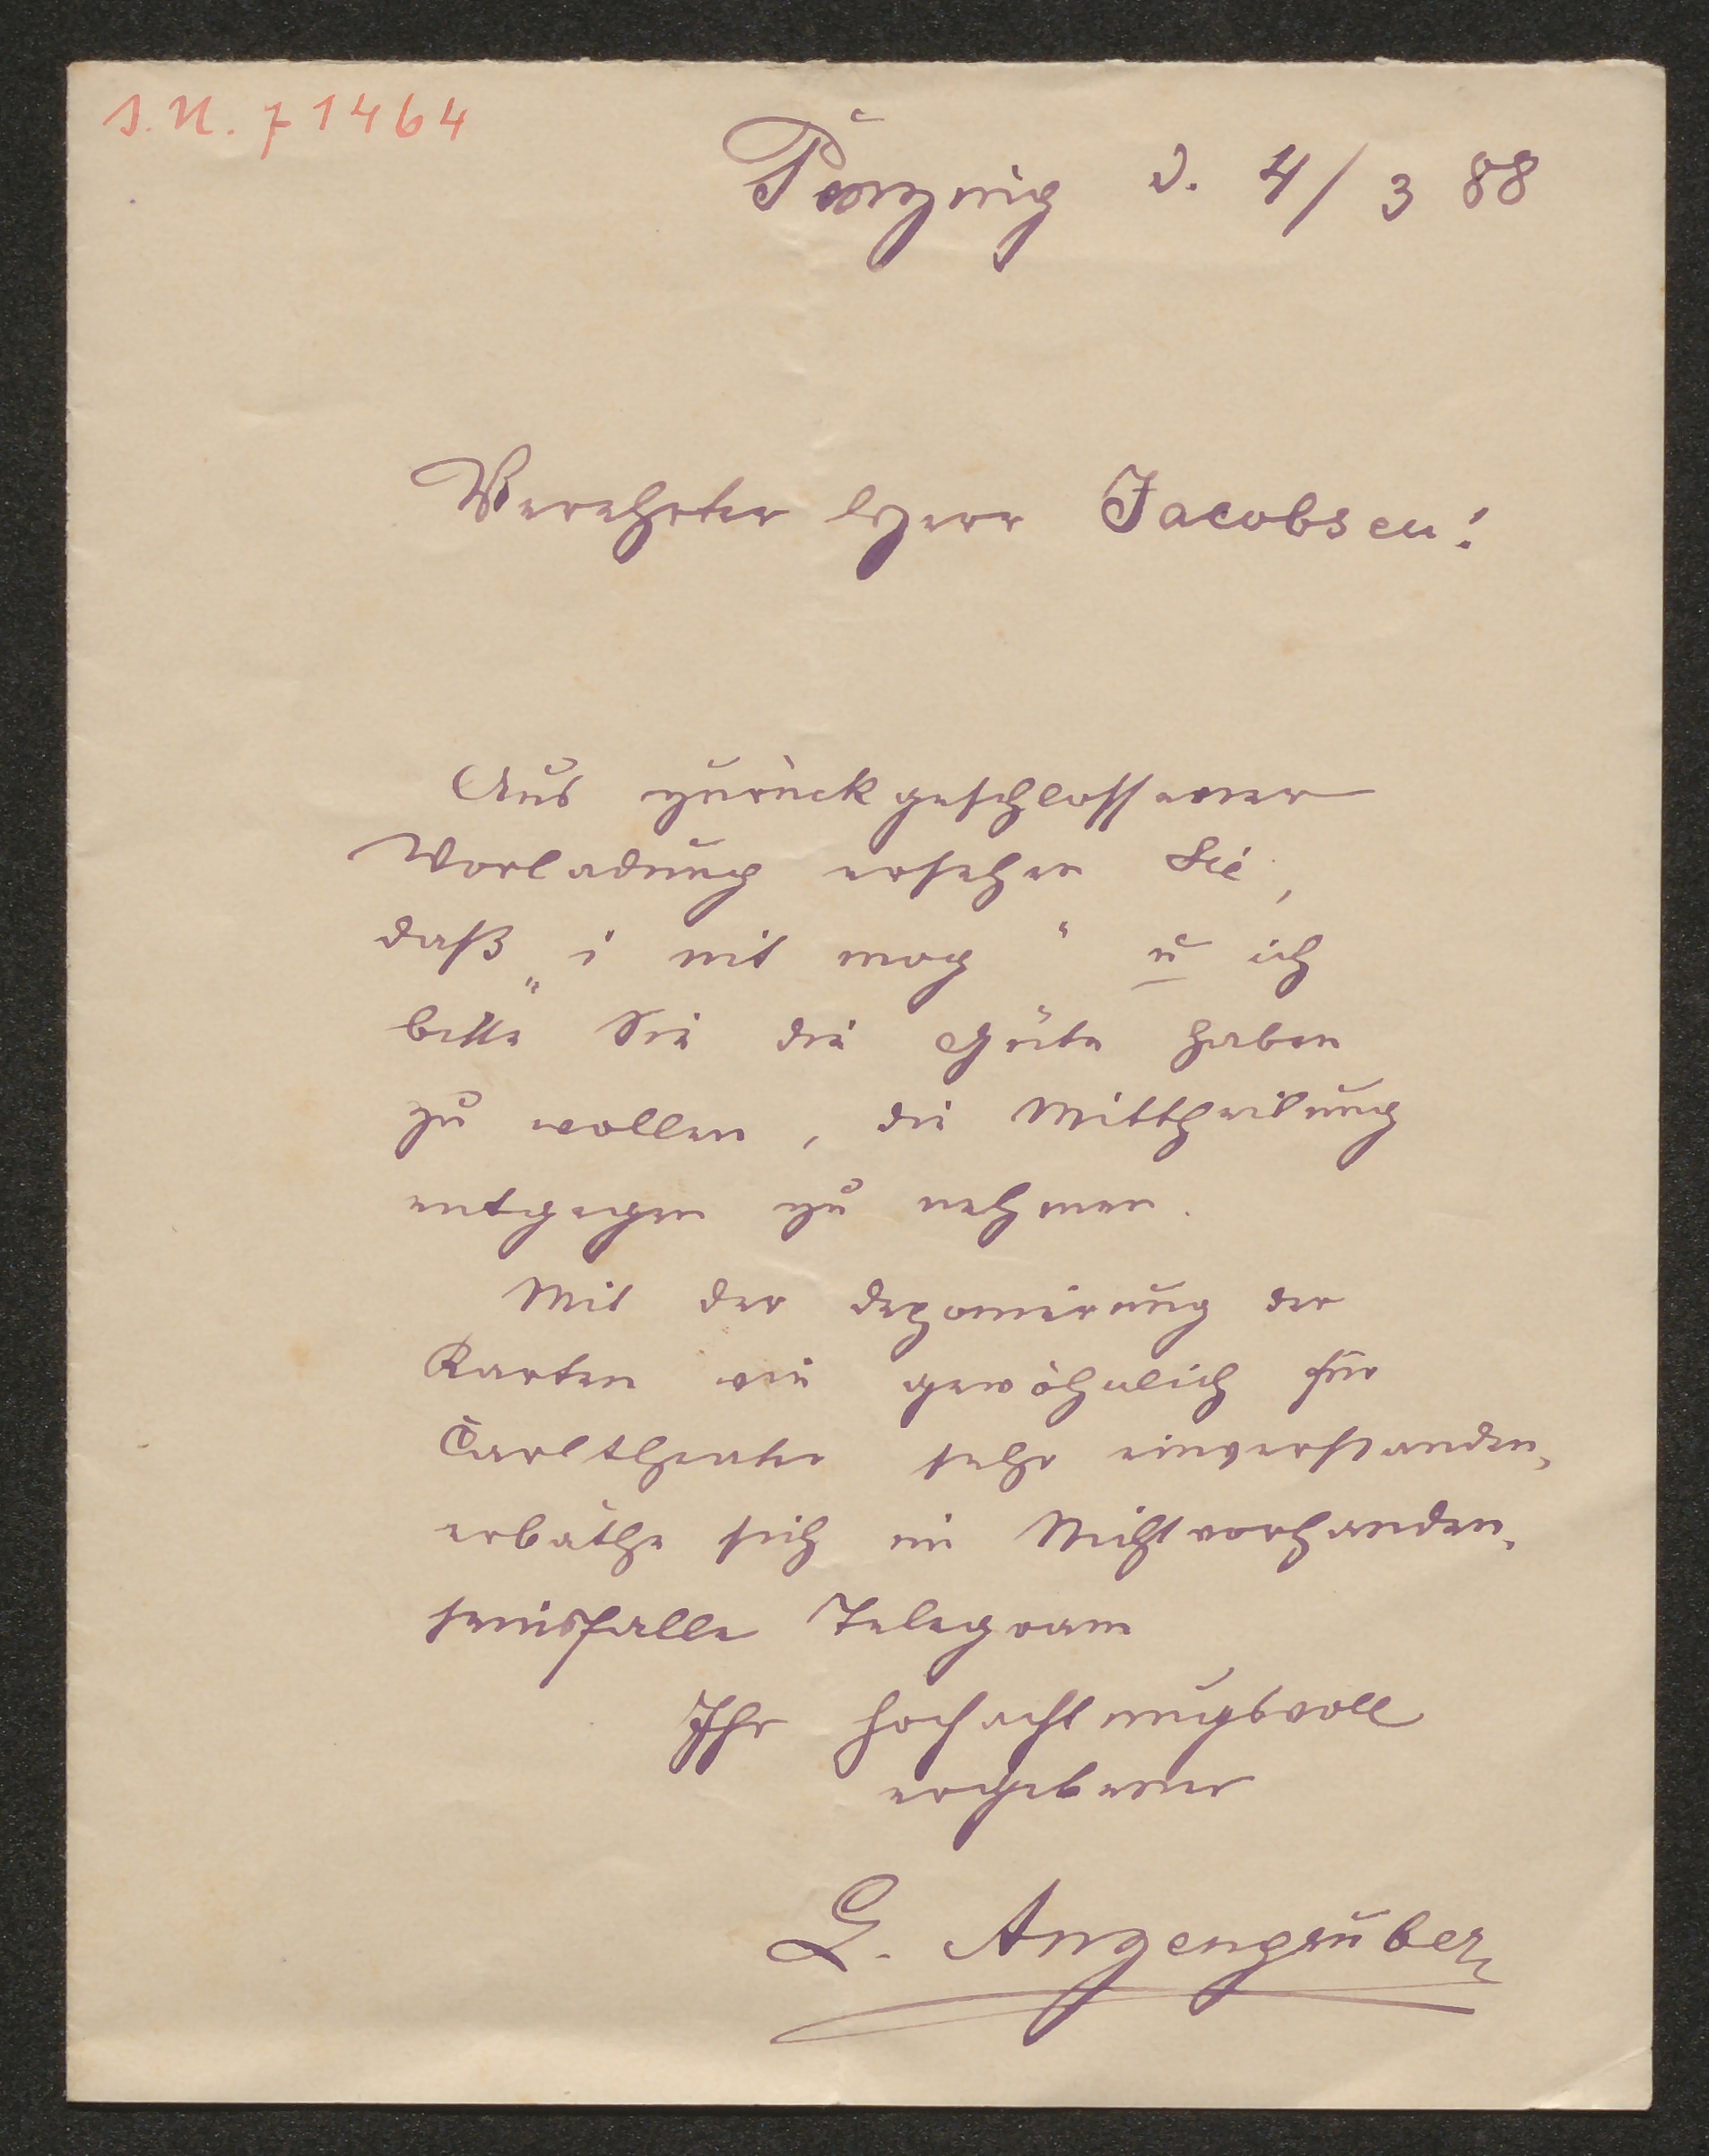 I.N. 71464
Penzing d. 4/3 88
Verehrter Herr Jacobsen!
Aus zurückgeschlossener
Vorladung ersehen Sie,
daß „i nit mag“ u ich
bitte Sie die Güte haben
zu wollen, die Mittheilung
entgegen zu nehmen.
Mit der deponirung der
Karten wie gewöhnlich für
Carltheater sehr einverstanden,
erbäthe sich im Nichtvorhanden-
seinsfalle Telegram
Ihr hochachtungsvoll
ergebener
L. Anzengruber